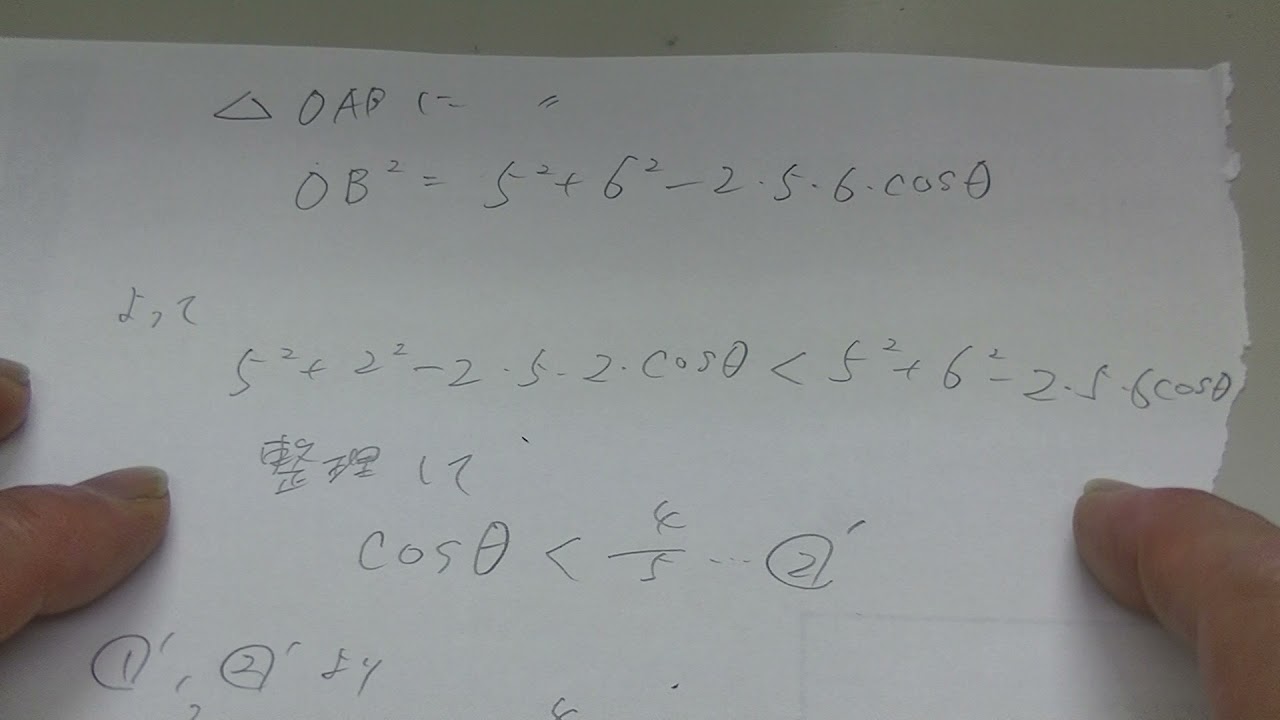 △OABに 〃
OB² = 5² + 6² - 2・5・6・cosθ
よって
5² + 2² - 2・5・2・cosθ < 5² + 6² - 2・5・6cosθ
整理して
cosθ < 4/5 … ②'
①', ②' より